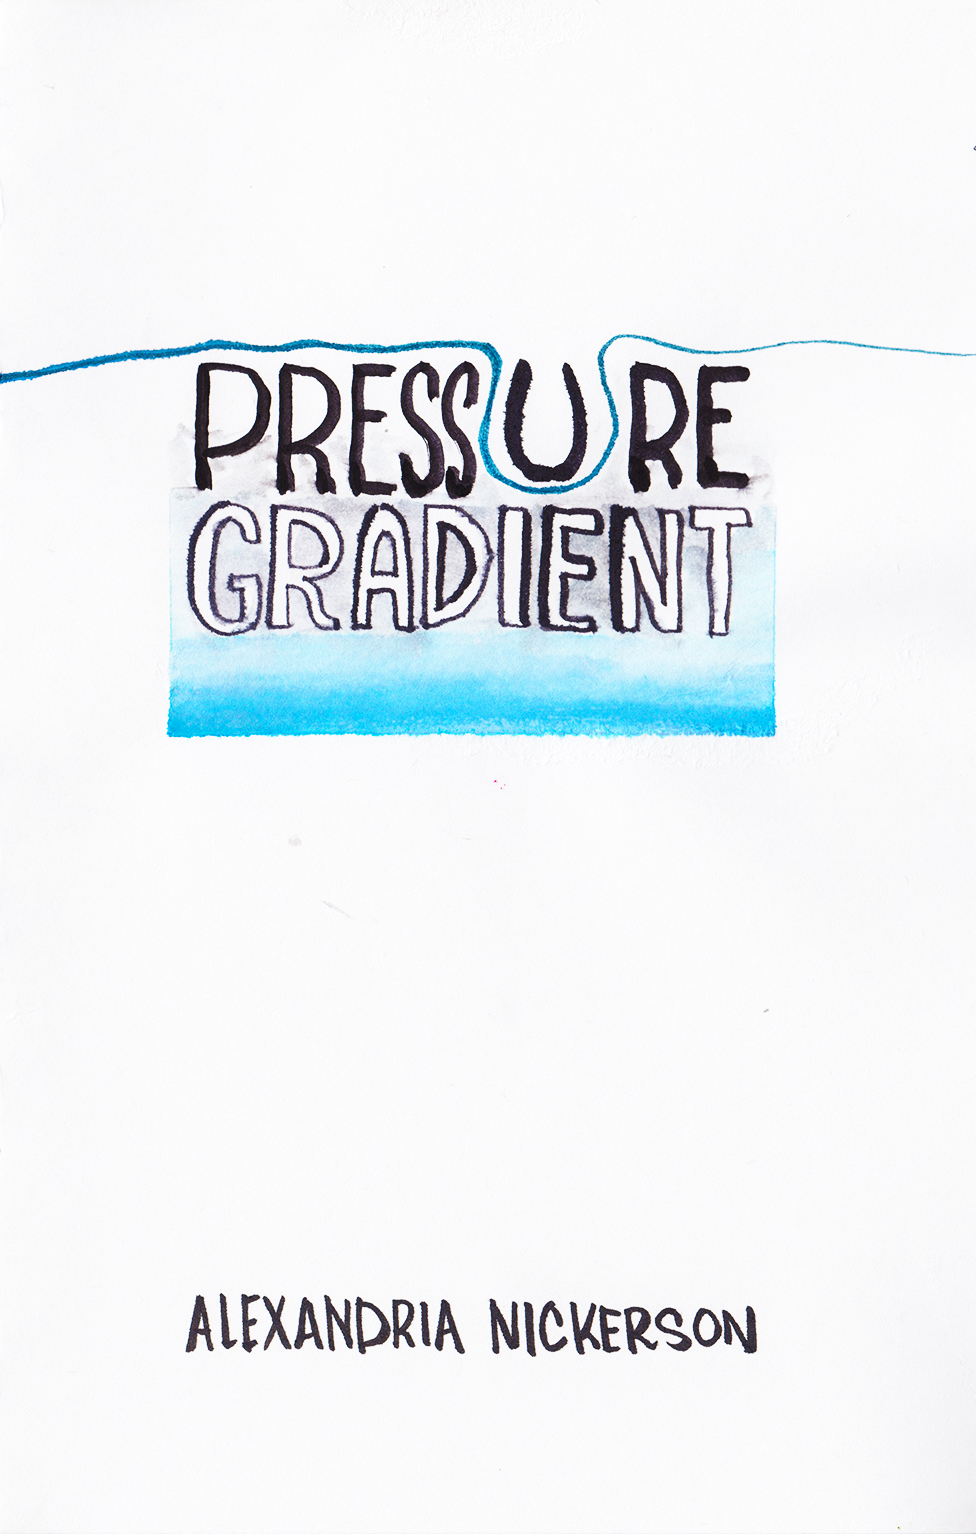 PRESSURE
GRADIENT
ALEXANDRIA NICKERSON